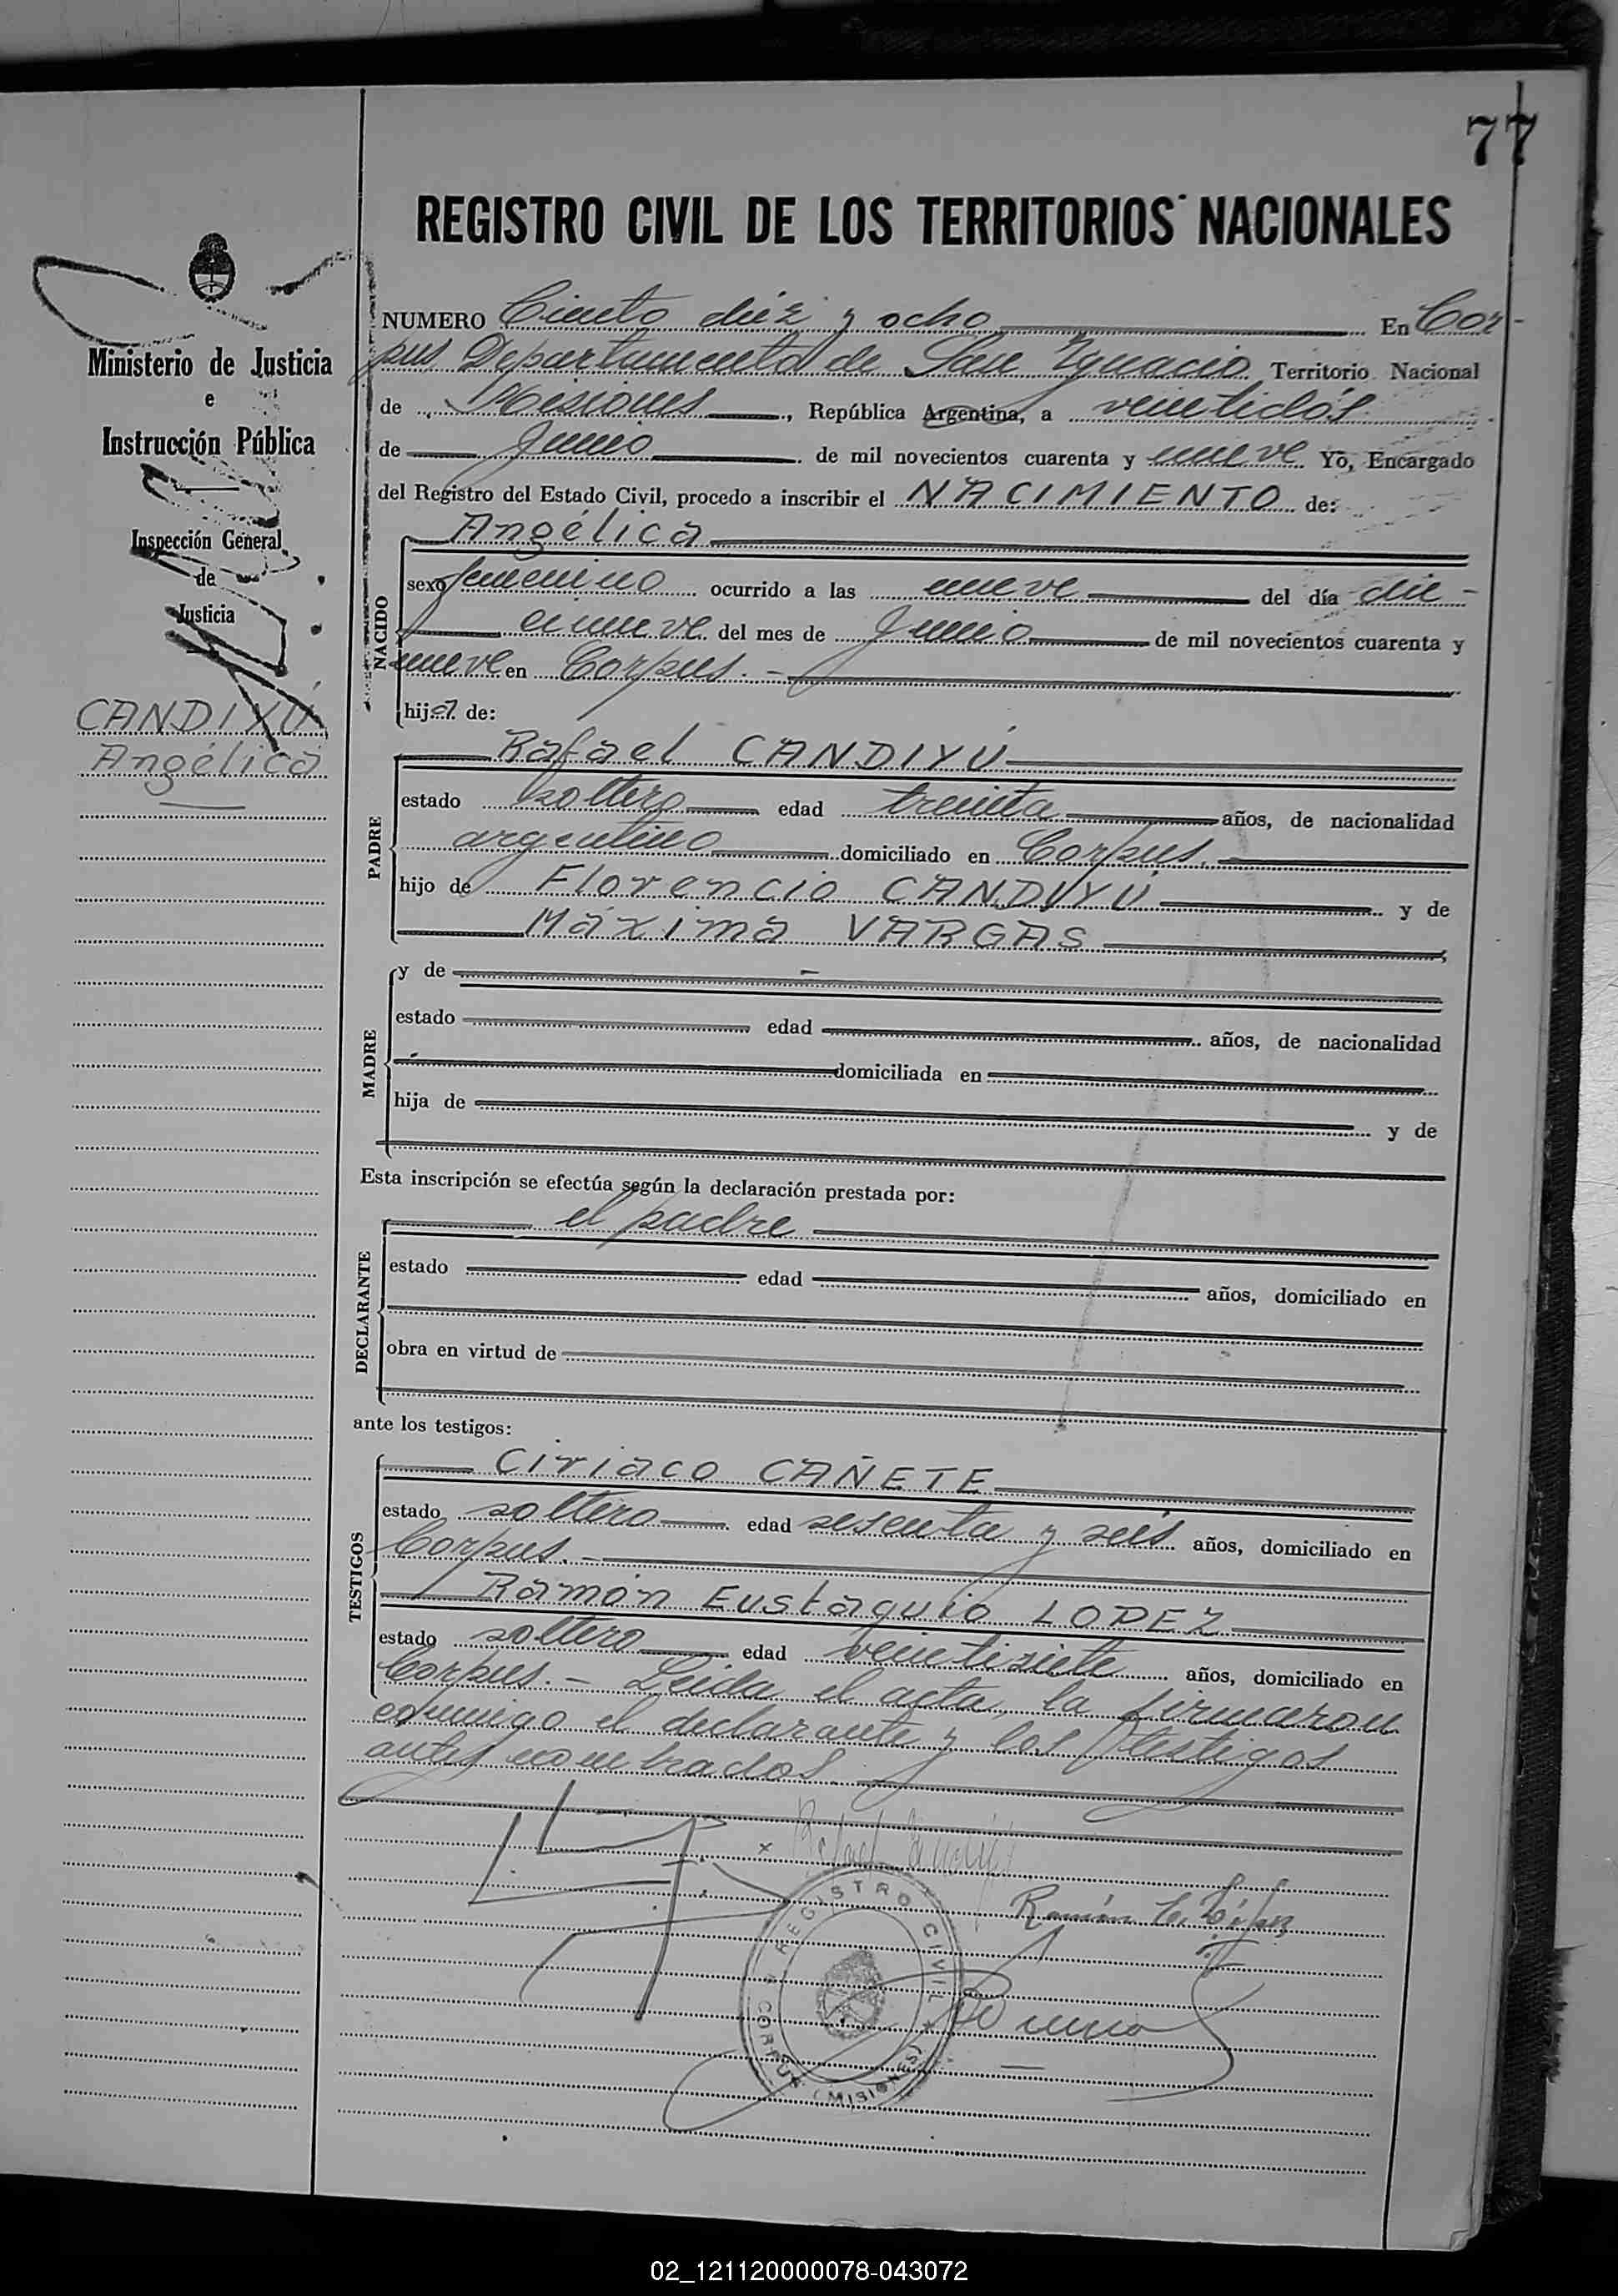 77
REGISTRO CIVIL DE LOS TERRITORIOS NACIONALES
Ministerio de Justicia
e
Instrucción Pública
Inspección General
de
Justicia
CANDIYÚ
Angélica
NUMERO Ciento diéz y ocho En Cor-
pus Departamento de San Ygnacio Territorio Nacional
de Misiones, República Argentina, a veintidós
de Junio de mil novecientos cuarenta y nueve Yo, Encargado
del Registro del Estado Civil, procedo a inscribir el NACIMIENTO de:
NACIDO
Angélica
sexo femenino ocurrido a las nueve del día die-
cinueve del mes de Junio de mil novecientos cuarenta y
nueve en Corpus.-
hija de:
PADRE
Rafael CANDIYÚ
estado soltero edad treinta años, de nacionalidad
argentino domiciliado en Corpus.
hijo de Florencio CANDIYÚ y de
Máxima VARGAS
MADRE
y de
estado edad años, de nacionalidad
domiciliada en
hija de y de
Esta inscripción se efectúa según la declaración prestada por:
DECLARANTE
el padre
estado edad años, domiciliado en
obra en virtud de
ante los testigos:
TESTIGOS
Ciriaco CAÑETE
estado soltero edad sesenta y seis años, domiciliado en
Corpus.-
Ramón Eustaquio LOPEZ
estado soltero edad veintisiete años, domiciliado en
Corpus.- Leida el acta, la firmaron
conmigo el declarante y los testigos
antes nombrados.
x Rafael
Ramón E. López
REGISTRO CIVIL
CORPUS (MISIONES)
02_121120000078-043072